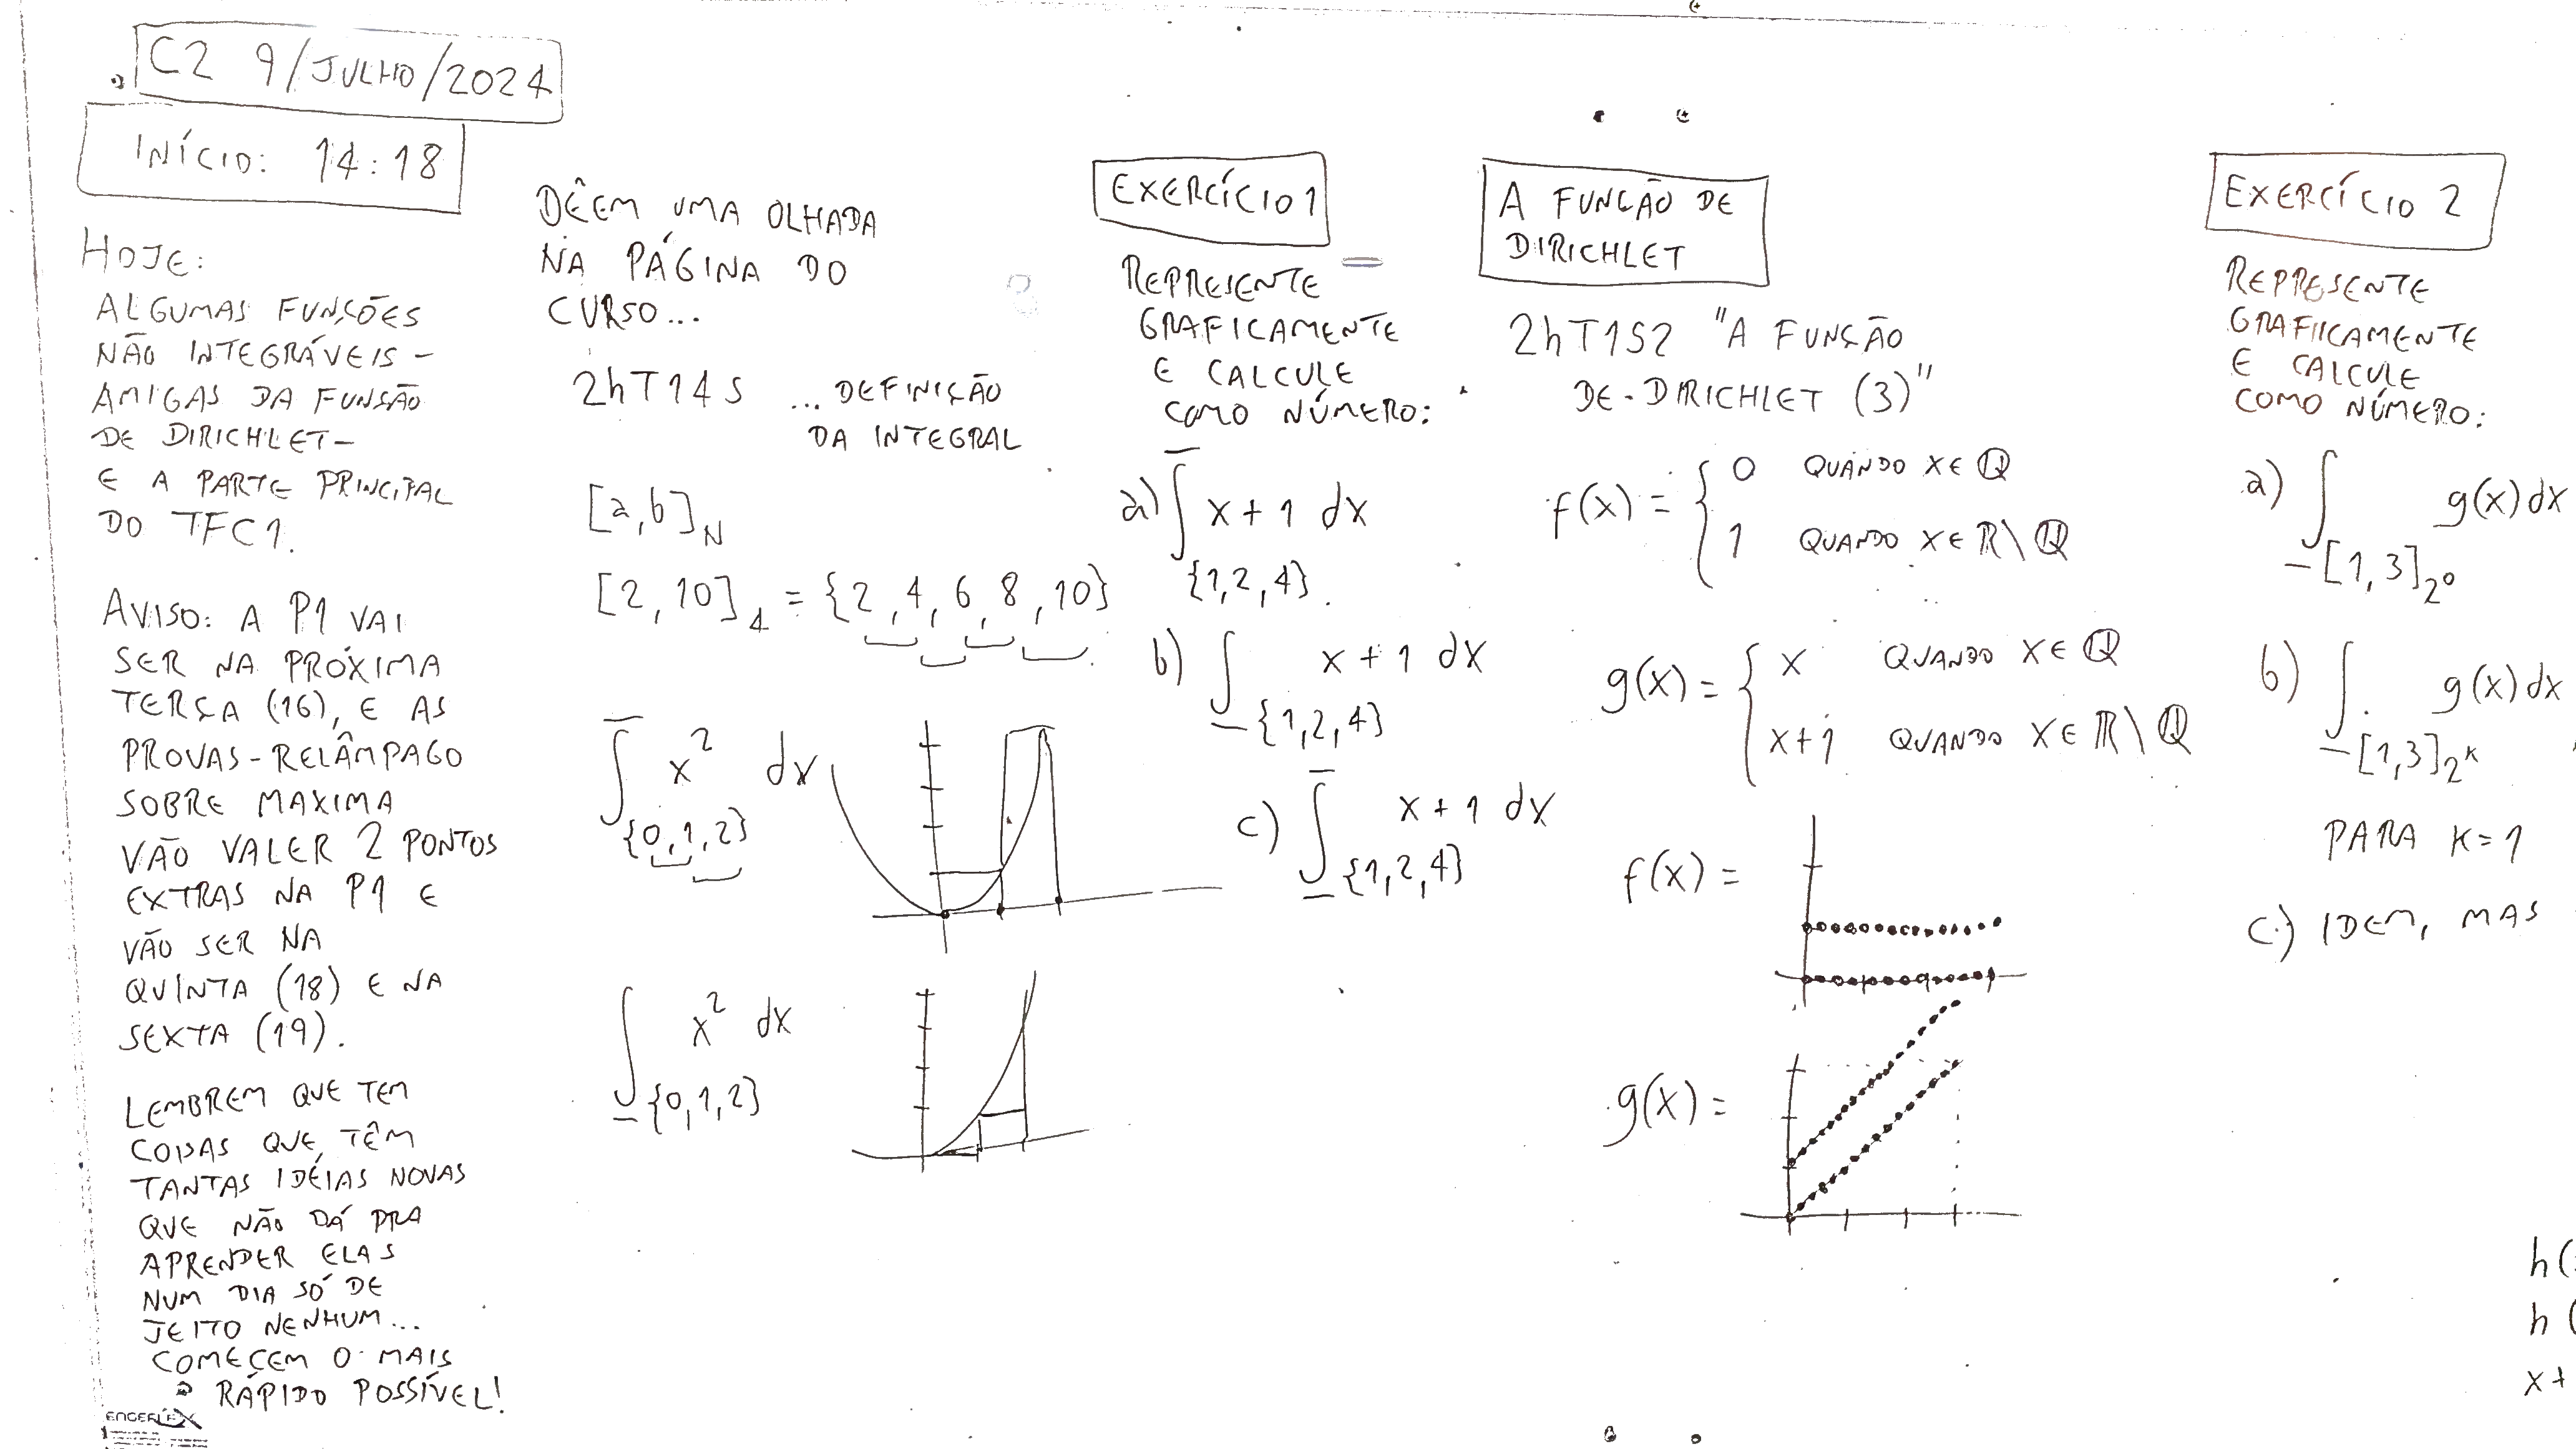 C2 9/JULHO/2024
INÍCIO: 14:18
HOJE:
ALGUMAS FUNÇÕES
NÃO INTEGRÁVEIS -
AMIGAS DA FUNÇÃO
DE DIRICHLET -
E A PARTE PRINCIPAL
DO TFC1.
AVISO: A P1 VAI
SER NA PRÓXIMA
TERÇA (16), E AS
PROVAS-RELÂMPAGO
SOBRE MAXIMA
VÃO VALER 2 PONTOS
EXTRAS NA P1 E
VÃO SER NA
QUINTA (18) E NA
SEXTA (19).
LEMBREM QUE TEM
COISAS QUE TÊM
TANTAS IDÉIAS NOVAS
QUE NÃO DÁ PRA
APRENDER ELAS
NUM DIA SÓ DE
JEITO NENHUM...
COMECEM O MAIS
RÁPIDO POSSÍVEL!
DÊEM UMA OLHADA
NA PÁGINA DO
CURSO...
2hT14S ... DEFINIÇÃO
DA INTEGRAL
[a,b]_N
[2,10]_4 = {2,4,6,8,10}
‾∫_{0,1,2} x² dx
∫_{0,1,2} x² dx
EXERCÍCIO 1
REPRESENTE
GRAFICAMENTE
E CALCULE
COMO NÚMERO:
a) ‾∫_{1,2,4} x+1 dx
b) ∫_{1,2,4} x+1 dx
c) ‾∫_{1,2,4} x+1 dx
A FUNÇÃO DE
DIRICHLET
2hT152 "A FUNÇÃO
DE DIRICHLET (3)"
f(x) = { 0 QUANDO X ∈ ℚ
1 QUANDO X ∈ ℝ\ℚ
g(x) = { x QUANDO X ∈ ℚ
x+1 QUANDO X ∈ ℝ\ℚ
f(x) =
g(x) =
EXERCÍCIO 2
REPRESENTE
GRAFIICAMENTE
E CALCULE
COMO NÚMERO:
a) ∫_[1,3]_2⁰ g(x) dx
b) ∫_[1,3]_2ᵏ g(x) dx
PARA K=1
c) IDEM, MAS
h(
h(
x+